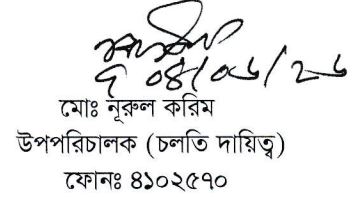 ০৪/০৬/২৬
মোঃ নূরুল করিম
উপপরিচালক (চলতি দায়িত্ব)
ফোনঃ ৪১০২৫৭০